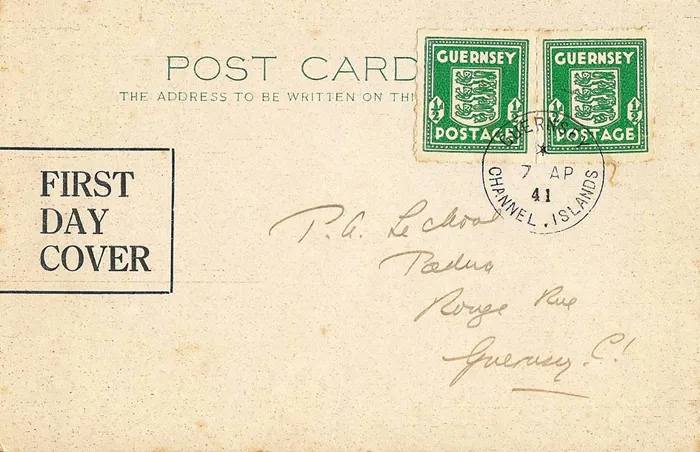 POST CARD
THE ADDRESS TO BE WRITTEN ON THI
GUERNSEY
½ ½
POSTAGE
GUERNSEY
½ ½
POSTAGE
GUERNSEY
7 AP
41
CHANNEL . ISLANDS
FIRST
DAY
COVER
P.A.
Rouge Rue
Guernsey. C.I